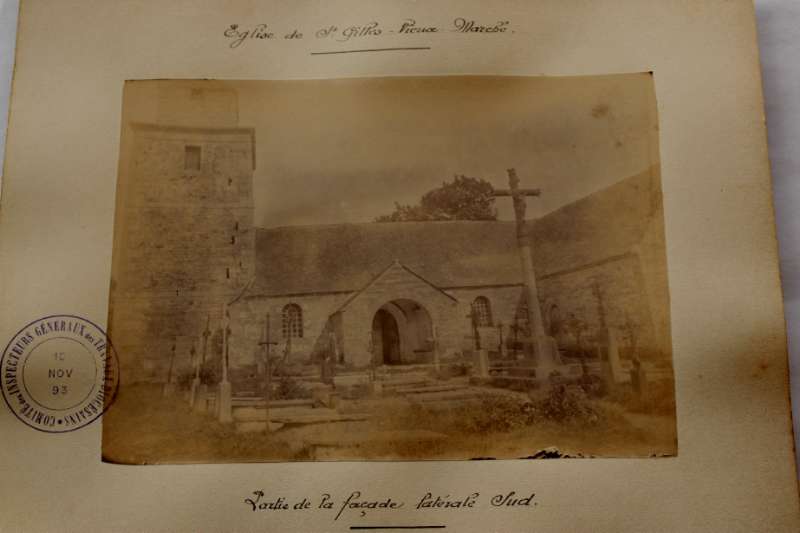 Eglise de St Gilles - Vieux - Marché.
COMITÉ des INSPECTEURS GÉNÉRAUX des TRAVAUX DIOCÉSAINS
10
NOV
93
Partie de la façade latérale Sud.